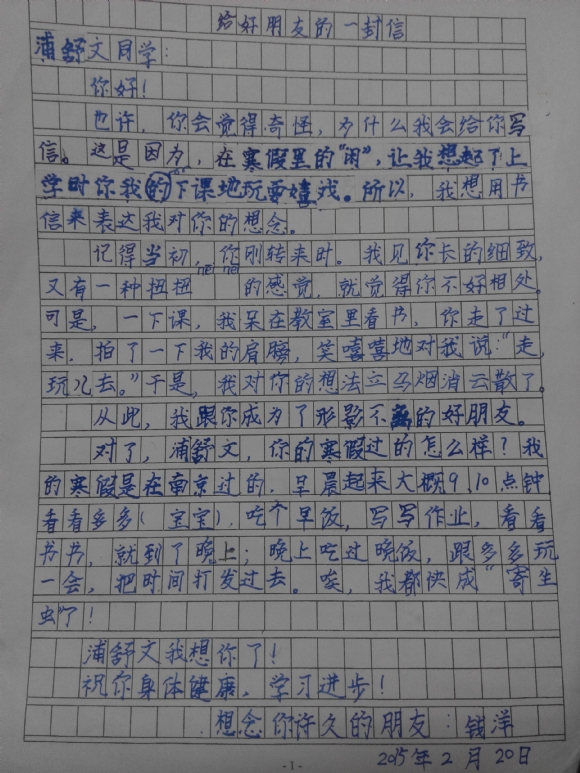 给好朋友的一封信
浦舒文同学：
你好！
也许，你会觉得奇怪，为什么我会给你写
信。这是因为，在寒假里的“闲”，让我想起了上
学时你我的下课地玩耍嬉戏。所以，我想用书
信来表达我对你的想念。
记得当初，你刚转来时。我见你长的细致，
又有一种扭扭 的感觉，就觉得你不好相处。
可是，一下课，我呆在教室里看书，你走了过
来，拍了一下我的肩膀，笑嘻嘻地对我说：“走，
玩儿去。”于是，我对你的想法立马烟消云散了。
从此，我跟你成为了形影不 的好朋友。
对了，浦舒文，你的寒假过的怎么样？我
的寒假是在南京过的，早晨起来大概9、10点钟，
看看多多（宝宝），吃个早饭，写写作业，看看
书书，就到了晚上；晚上吃过晚饭，跟多多玩
一会，把时间打发过去。唉，我都快成“寄生
虫”了！
浦舒文我想你了！
祝你身体健康，学习进步！
想念你许久的朋友：钱洋
2015年2月20日
-1-